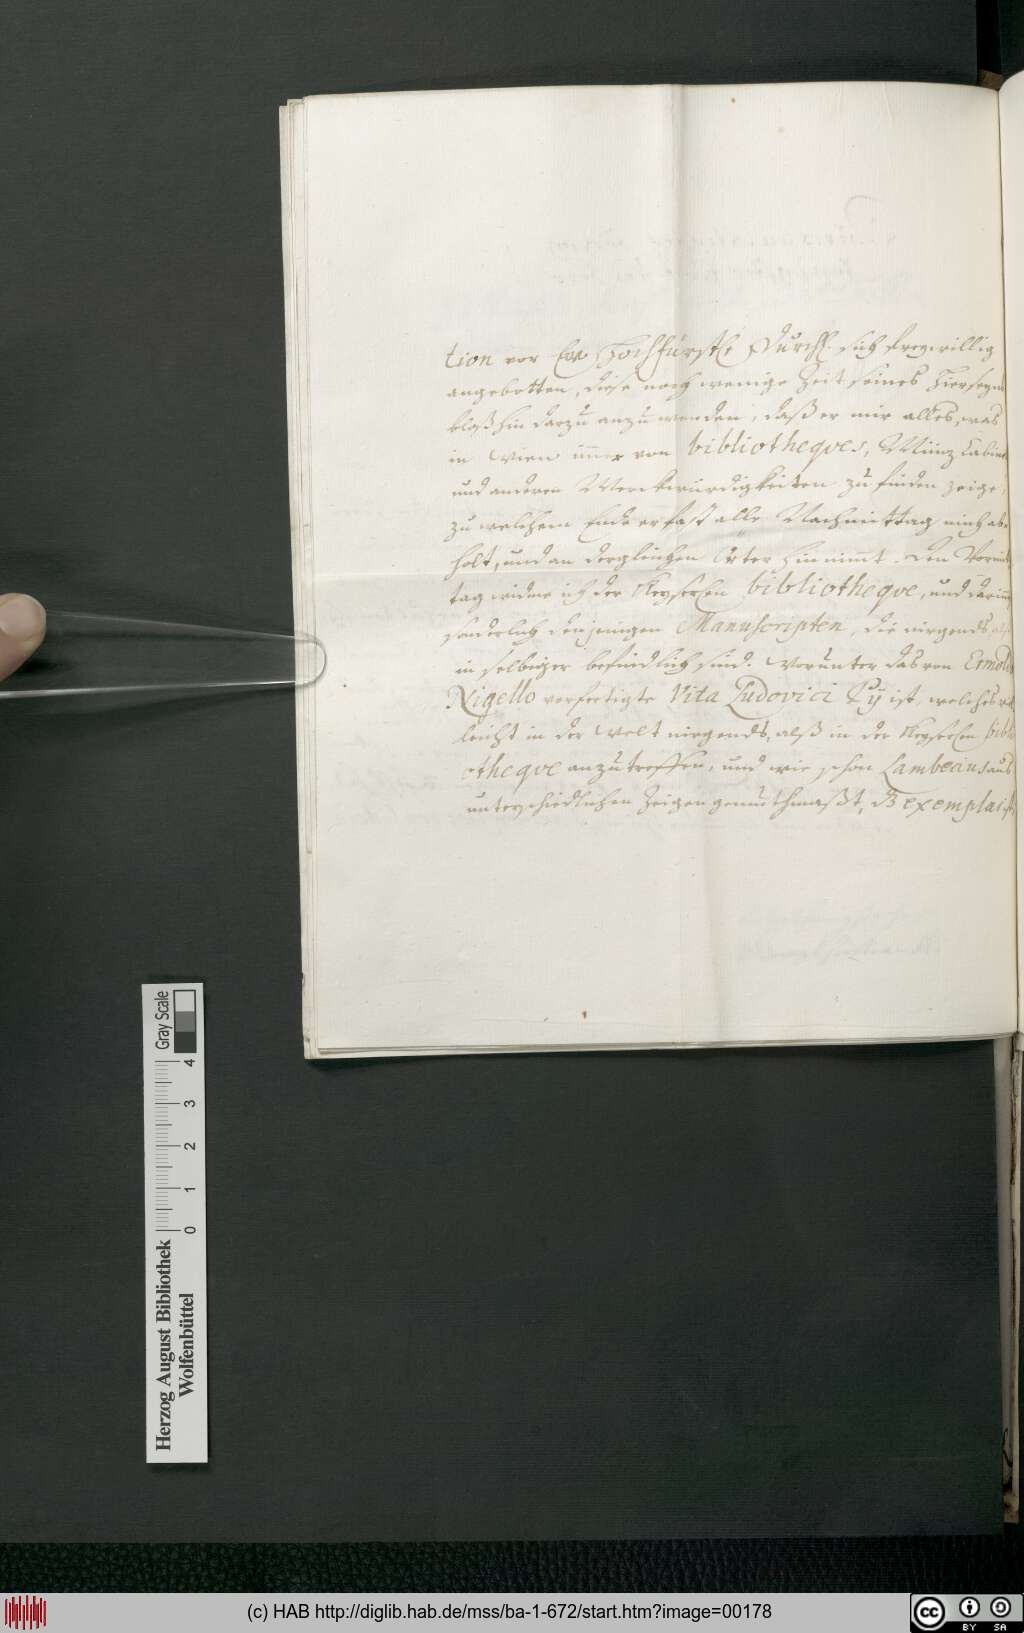 tion vor Ew. Hochfürstl. Durchl. sich freywillig
angebotten, diese noch wenige Zeit seines Hierseyns
bloßhin darzu anzuwenden, daß er mir alles, was
in Wien immer von bibliotheques, Müntz Cabinet
und anderen Merckwürdigkeiten zu finden zeige,
zu welchem Ende er fast alle Nachmittag mich ab-
holt, und an dergleichen Örter hinnimmt. Den Vormit-
tag widme ich der Keyserlen bibliotheque, und darinn
sonderlich denjenigen Manuscripten, die nirgends alß
in selbiger befindlich sind. Worunter das von Ermoldo
Nigello verfertigte Vita Ludovici Pij ist, welches viel-
leicht in der Welt nirgends, alß in der Keyserlen bibli-
otheque anzutreffen, und wie schon Lambecius aus
unterschiedlichen Zeigen gemuthmaßt,
Herzog August Bibliothek
Wolfenbüttel
0 1 2 3 4
Gray Scale
(c) HAB http://diglib.hab.de/mss/ba-1-672/start.htm?image=00178
cc BY SA